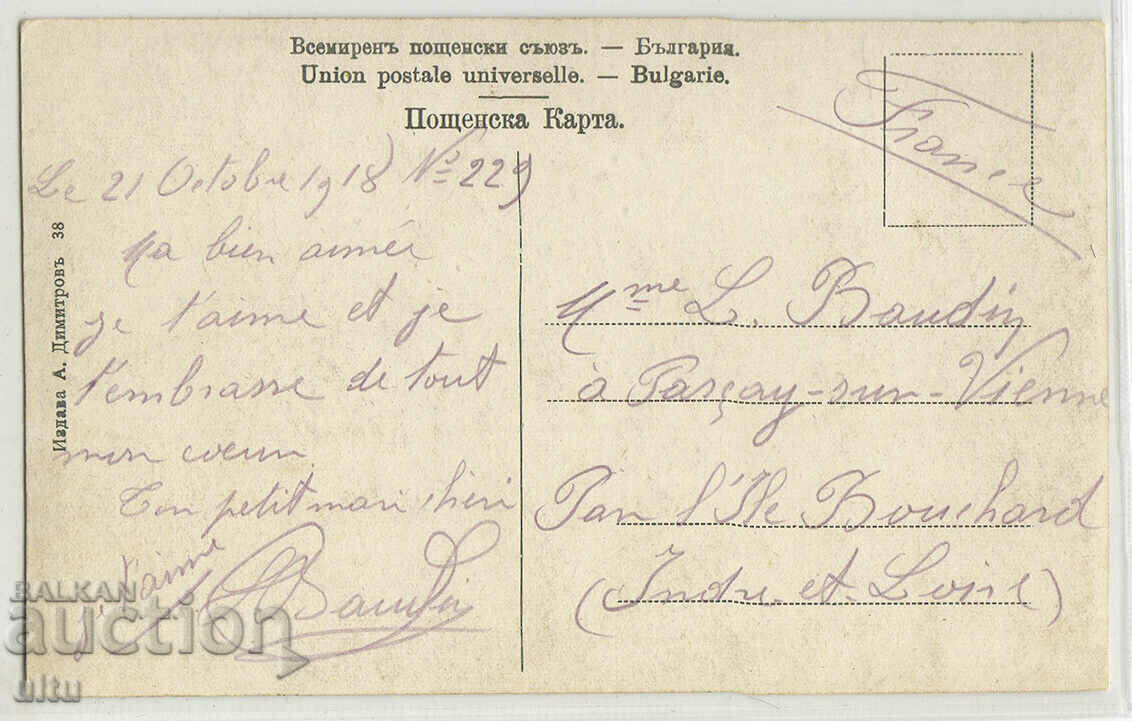 Всемиренъ пощенски съюзъ. — България.
Union postale universelle. — Bulgarie.
Пощенска Карта.
France
Le 21 Octobre 1918 N° 229
Ma bien aimée
je t'aime et je
t'embrasse de tout
mon coeur
Ton petit mari chéri
je t'aime
Baudin
Издава А. Димитровъ 38
Mme L. Baudin
à Parçay-sur-Vienne
Par l'Ile Bouchard
(Indre-et-Loire)
BALKAN
auction
ultu